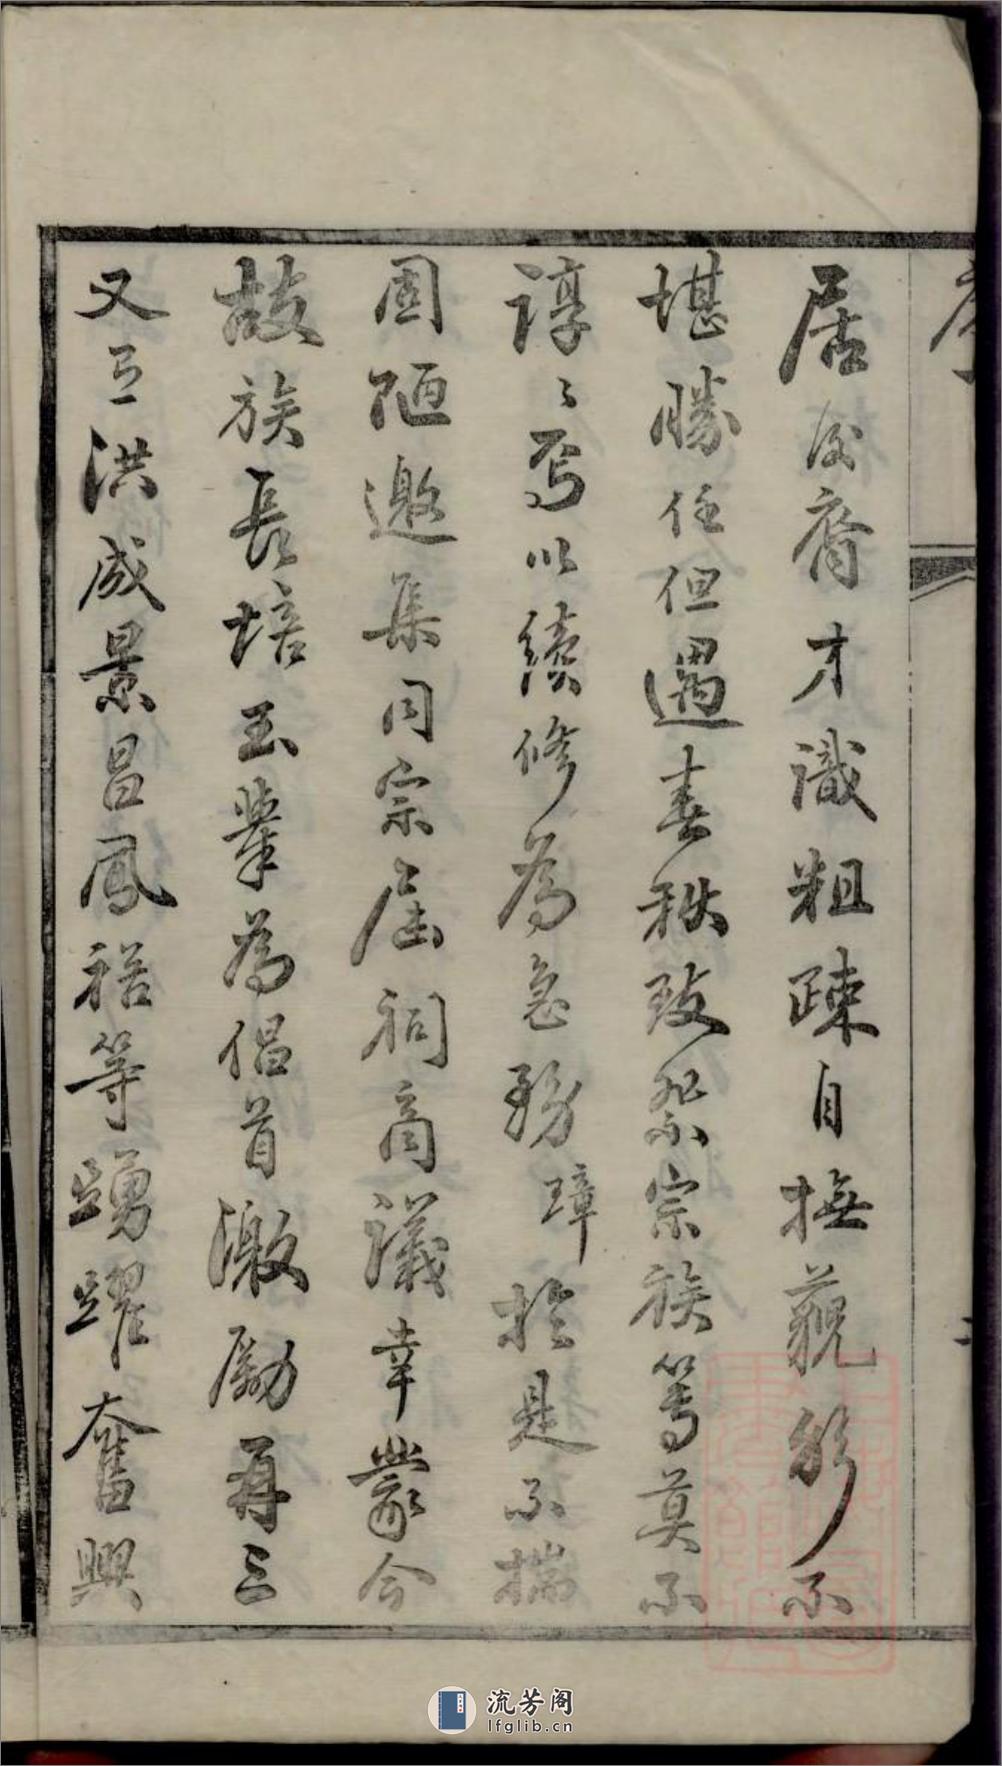 序
居後裔才識粗疎自撫藐躬不
堪勝任但遇春秋致祭宗族等莫不
諄〻焉以續修為急務璋於是不揣
固陋邀集同宗屆祠商議幸蒙今
故族長培玉輩為倡首激勵再三
又立洪成景昌鳳褡等踴躍奮興
流芳阁
lfglib.cn